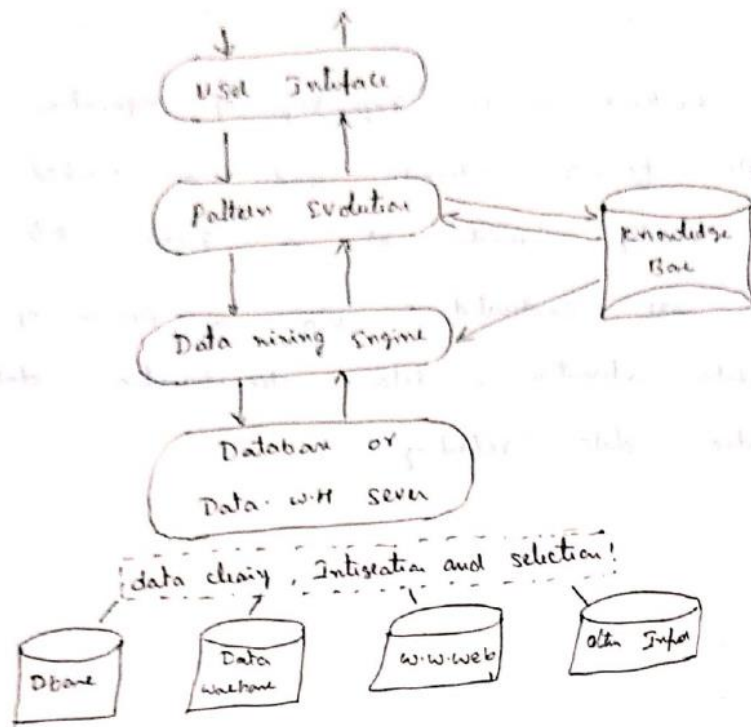 User Interface
Pattern Evolution
Knowledge
Base
Data mining Engine
Database or
Data. W.H Sever
data cleaning, Integration and selection
Dbase
Data
Warehouse
W.W.Web
Other Infor